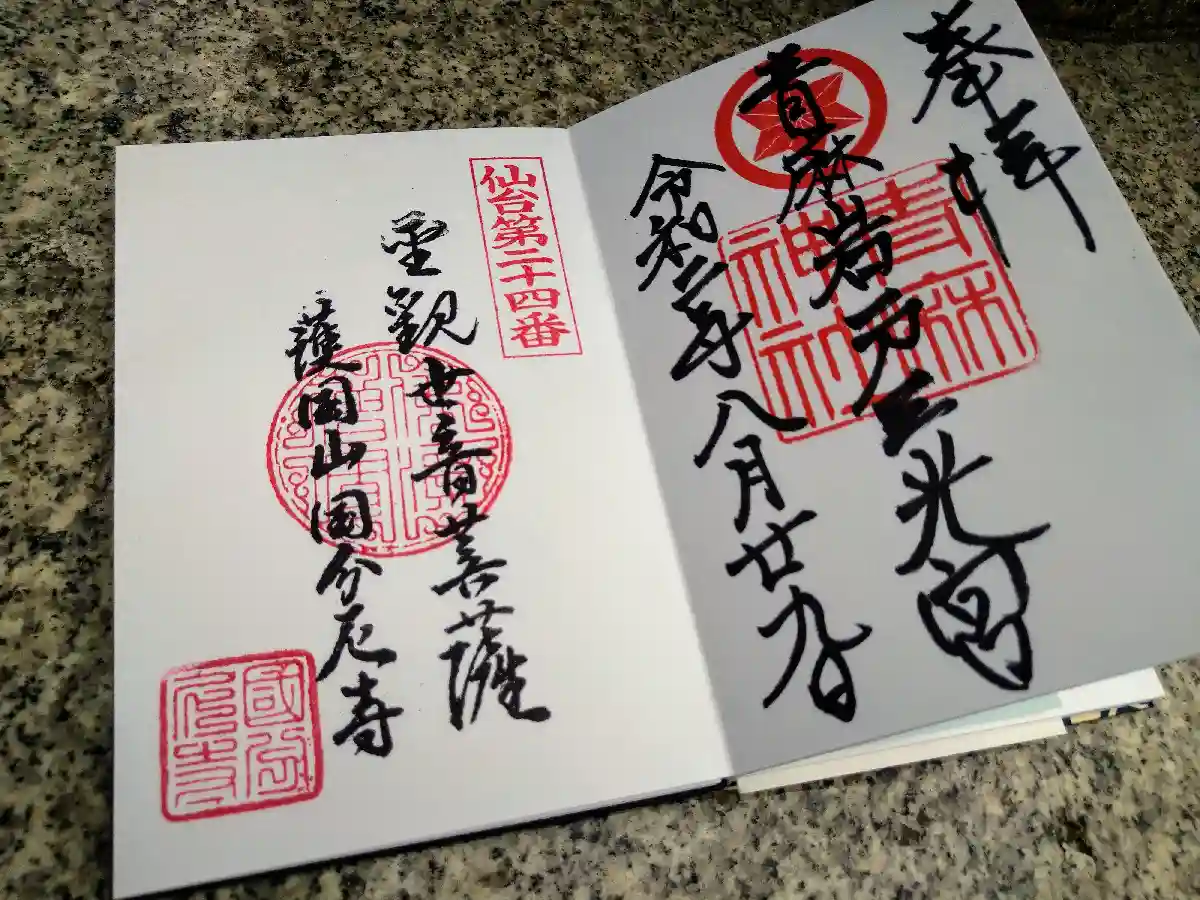 奉拝
青麻岩戸三光宮
青麻神社
令和二年八月廿九日
仙台第二十四番
聖觀世音菩薩
護国山国分尼寺
國分尼寺